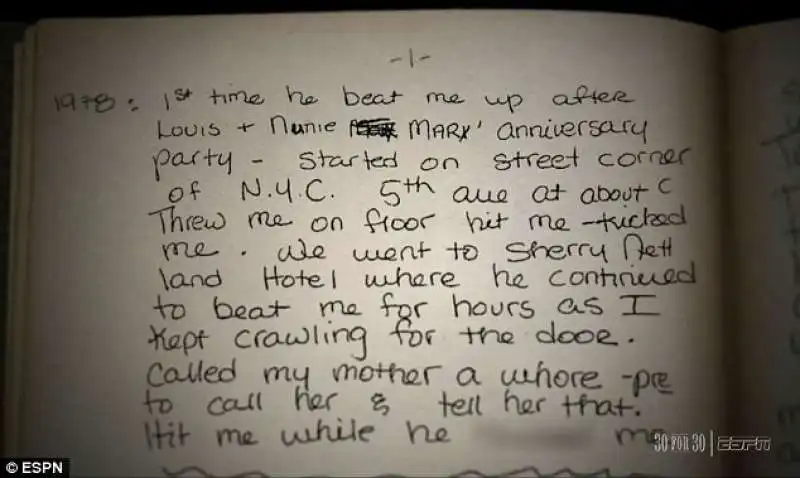 -1-
1978: 1st time he beat me up after
Louis + Nunie MARX' anniversary
party - started on street corner
of N.Y.C. 5th ave at about C
Threw me on floor hit me - kicked
me. We went to Sherry Nett
land Hotel where he continued
to beat me for hours as I
kept crawling for the door.
Called my mother a whore - pre
to call her & tell her that.
Hit me while he me
30 FOR 30 | ESPN
© ESPN